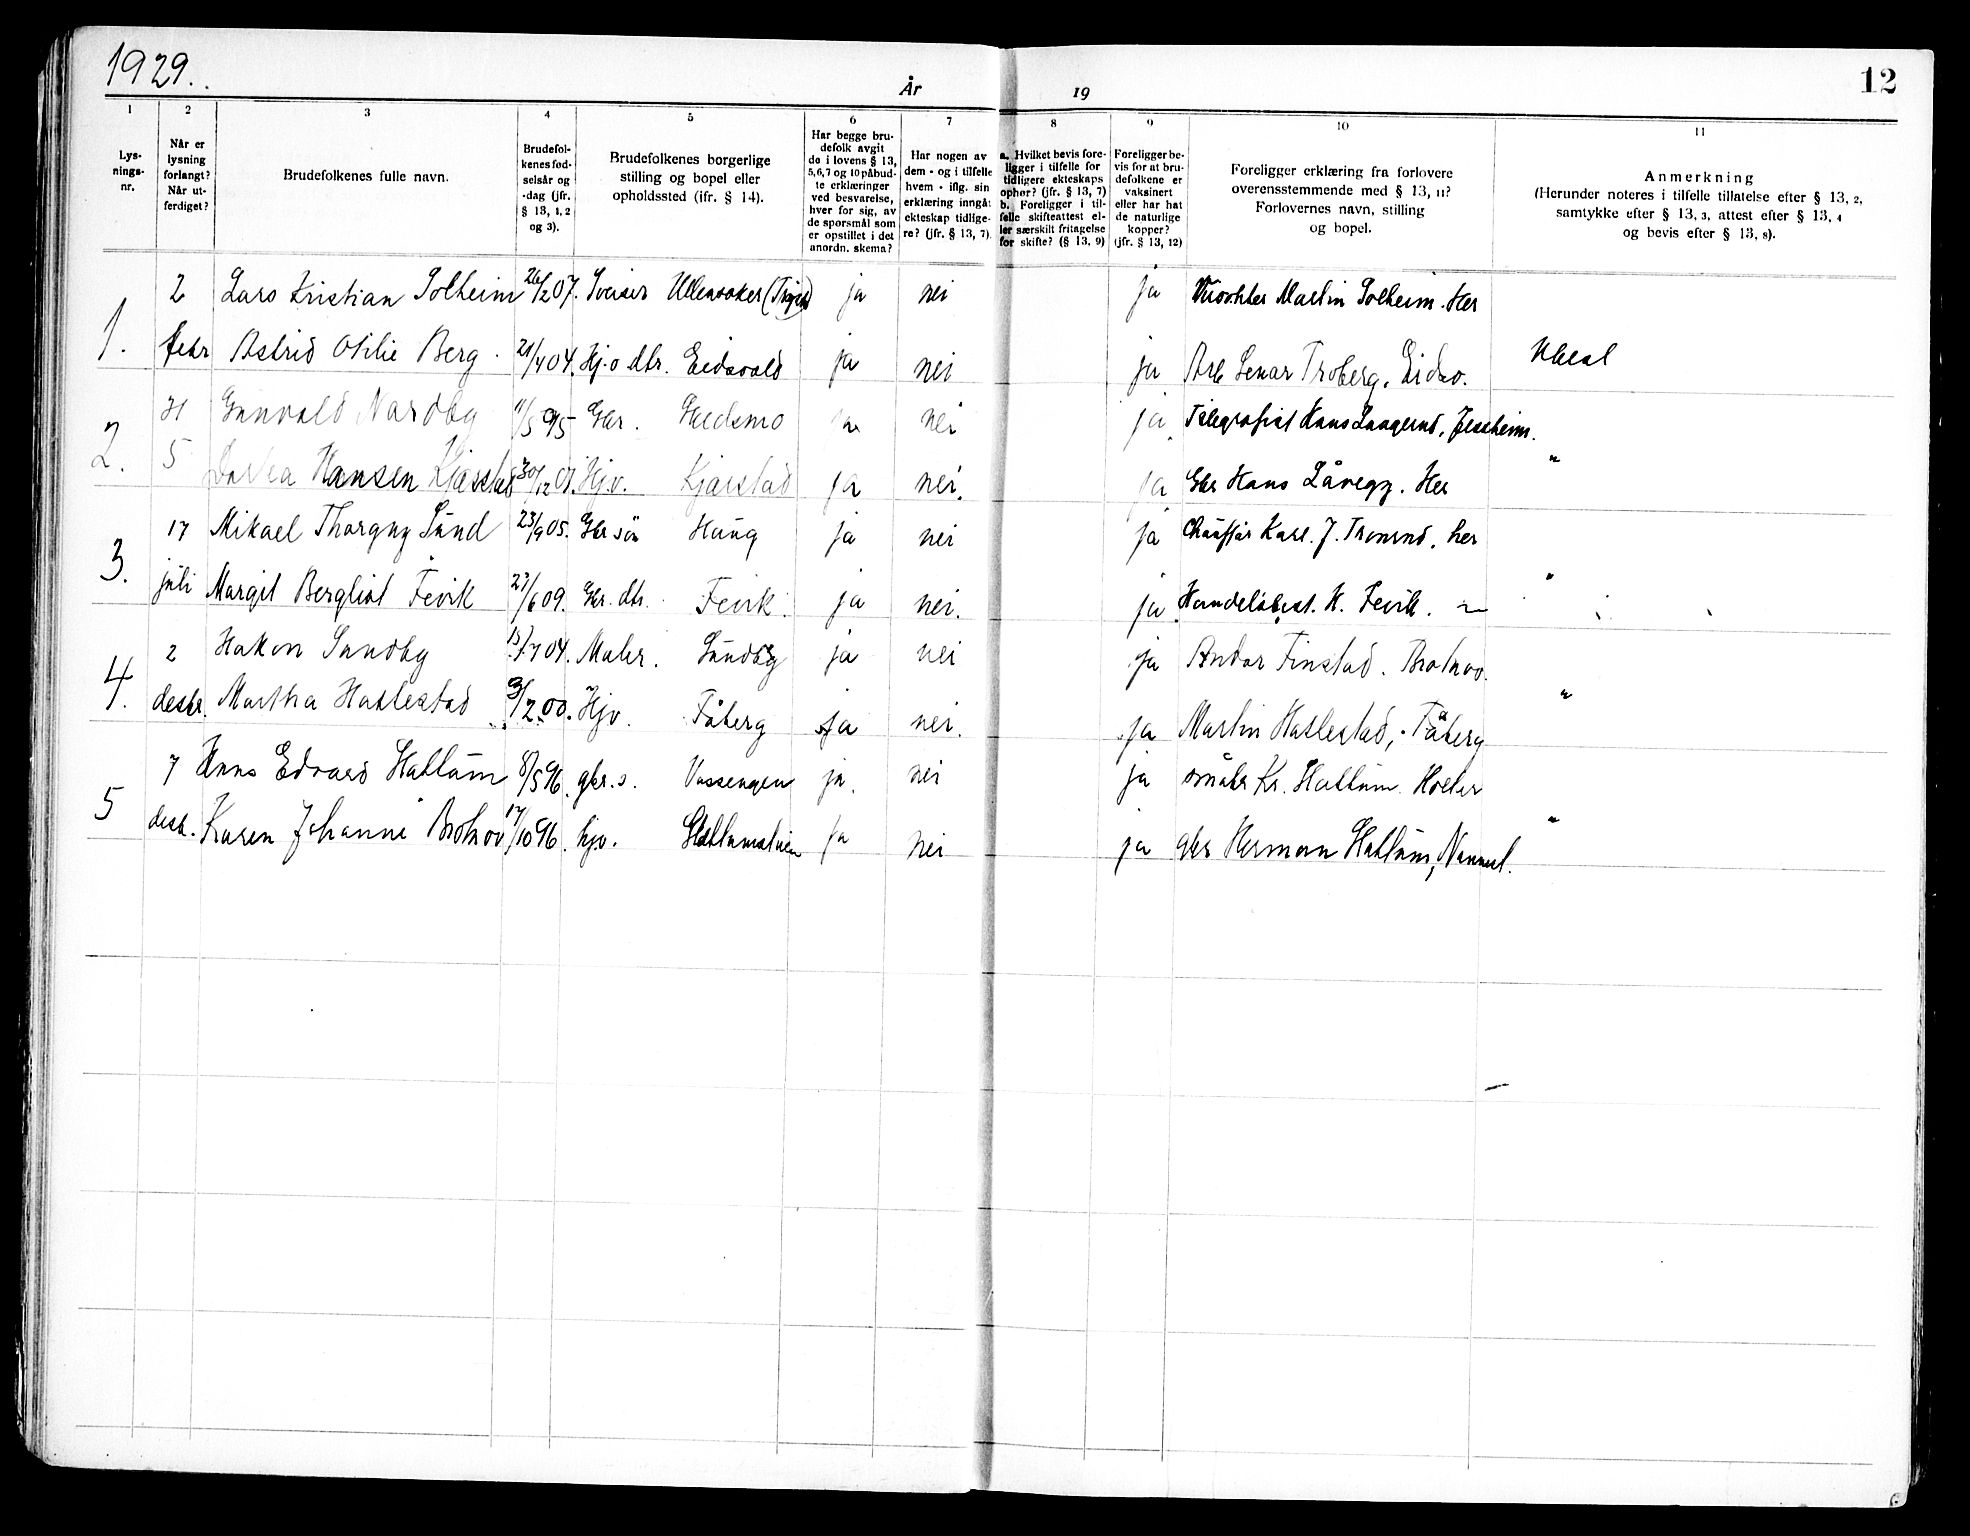 1929.
År
19
12
1
2
3
4
5
6
7
8
9
10
11
Lys-
nings-
nr.
Når er
lysning
forlangt?
Når ut-
ferdiget?
Brudefolkenes fulle navn.
Brudefol-
kenes fød-
selsår og
-dag (jfr.
§ 13, 1, 2
og 3).
Brudefolkenes borgerlige
stilling og bopel eller
opholdssted (ifr. § 14).
Har begge bru-
defolk avgit
de i lovens § 13,
5,6,7 og 10 påbud-
te erklæringer
ved besvarelse,
hver for sig, av
de spørsmål som
er opstillet i det
anordn. skema?
Har nogen av
dem - og i tilfelle
hvem - iflg. sin
erklæring inngåt
ekteskap tidlige-
re? (jfr. § 13, 7).
a. Hvilket bevis fore-
ligger i tilfelle for
tidligere ekteskaps
ophør? (jfr. § 13, 7)
b. Foreligger i til-
felle skifteattest el-
ler særskilt fritagelse
for skifte? (§ 13, 9)
Foreligger be-
vis for at bru-
defolkene er
vaksinert
eller har hat
de naturlige
kopper?
(jfr. § 13, 12)
Foreligger erklæring fra forlovere
overensstemmende med § 13, 11?
Forlovernes navn, stilling
og bopel.
Anmerkning
(Herunder noteres i tilfelle tillatelse efter § 13, 2,
samtykke efter § 13, 3, attest efter § 13, 4
og bevis efter § 13, 8).
1. 2 Lars Kristian Solheim 26/2 07. Sveiser Ullensaker ja nei ja Martin Solheim. Her
febr Astrid Otilie Berg. 21/4 04. Hj. o dtr. Eidsvold ja nei ja Arb Lenar Troberg, Eidsv. Ubesl
2. 31 Gunvald Nordby 11/5 95 Gbr. Skedsmo ja nei ja Telegrafist Hans Laagerud, Jessheim.
5 Hansen Kjærstad 30/12 01. Hjv. Kjærstad ja nei. ja Gbr Hans Låvegg. Her "
3. 17 Mikael Thorgny Sund 23/9 05. Gbr søn Haug ja nei ja Chauffør Karl. J. Tronrud, her
juli Margit Bergliot Fevik 27/6 09. Gbr. dtr. Fevik. ja nei. ja Handelsbest. K. Fevik. "
4. 2 Hakon Sundby 15/7 04. Maler. Sundby ja nei ja Andor Finstad. Brotnov.
desbr. Martha Haslestad 9/2 00. Hjv. Fåberg ja nei. ja Martin Haslestad, Fåberg "
5 7 Hans Edvard Hallum 8/5 96. gbr. s. Vassengen ja. nei ja småbr Kr. Hallum. Holter
desb. Karen Johanne Brotnov 17/10 96. hjv. ja nei ja gbr Herman Hallum, Nannest. "